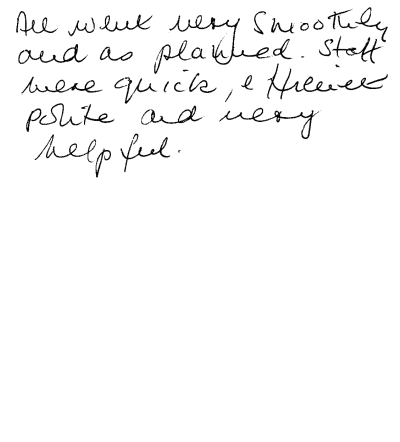 All went very smoothly
and as planned. Staff
were quick, efficient
polite and very
helpful.